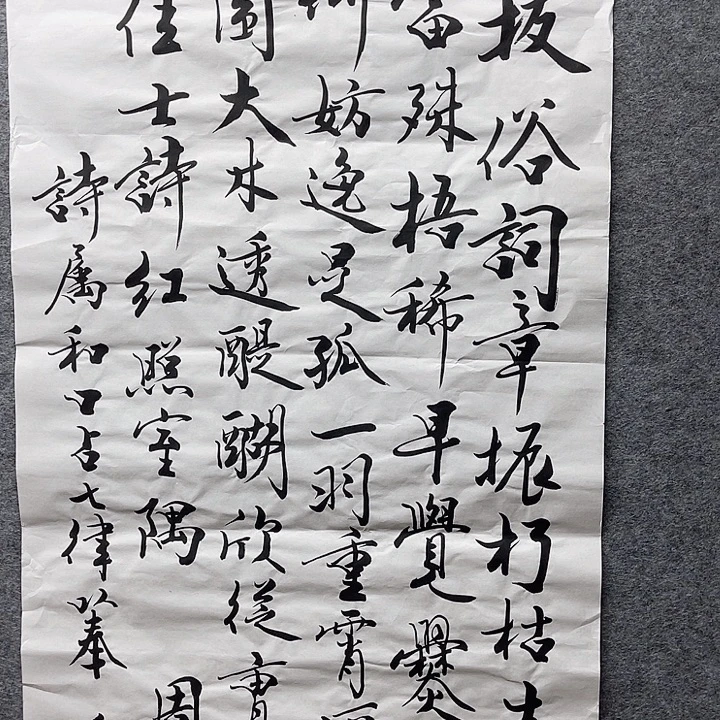 拔俗詞章振朽枯
殊梧稀早覺爨
妨逸足孤一羽重霄
園大木透醍醐欣從
佳士詩紅照室隅
詩屬和口占七律以奉
周